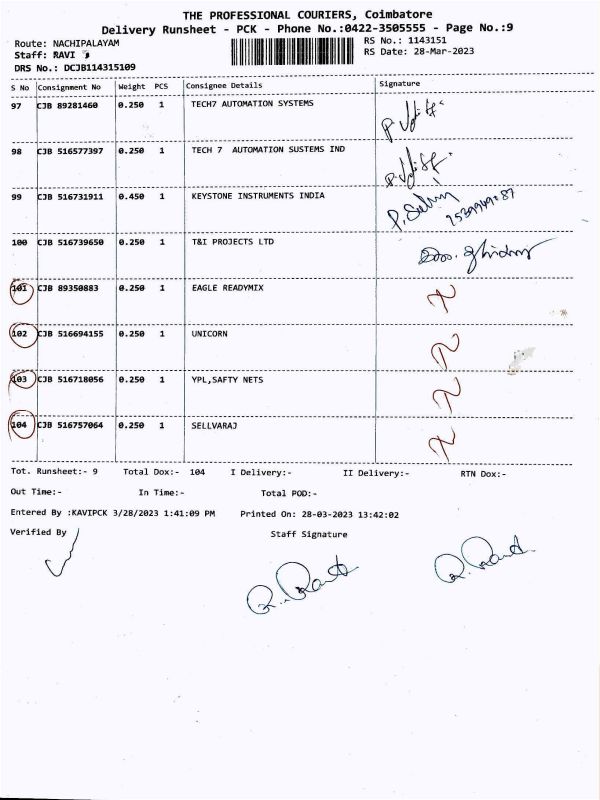 THE PROFESSIONAL COURIERS, Coimbatore
Delivery Runsheet - PCK - Phone No.:0422-3505555 - Page No.:9
Route: NACHIPALAYAM
RS No.: 1143151
Staff: RAVI
RS Date: 28-Mar-2023
DRS No.: DCJB114315109
S No Consignment No Weight PCS Consignee Details Signature
97 CJB 89281460 0.250 1 TECH7 AUTOMATION SYSTEMS
98 CJB 516577397 0.250 1 TECH 7 AUTOMATION SUSTEMS IND
99 CJB 516731911 0.450 1 KEYSTONE INSTRUMENTS INDIA
100 CJB 516739650 0.250 1 T&I PROJECTS LTD
101 CJB 89350883 0.250 1 EAGLE READYMIX
102 CJB 516694155 0.250 1 UNICORN
103 CJB 516718056 0.250 1 YPL,SAFTY NETS
104 CJB 516757064 0.250 1 SELLVARAJ
Tot. Runsheet:- 9 Total Dox:- 104 I Delivery:- II Delivery:- RTN Dox:-
Out Time:- In Time:- Total POD:-
Entered By :KAVIPCK 3/28/2023 1:41:09 PM Printed On: 28-03-2023 13:42:02
Verified By Staff Signature